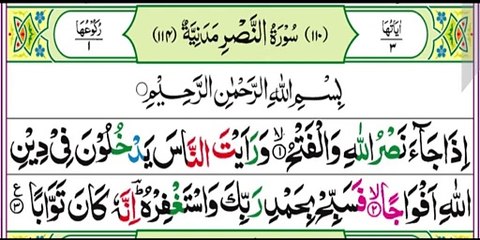 اٰيَاتُهَا ٣ (١١٠) سُوْرَةُ النَّصْرِ مَدَنِيَّةٌ (١١٤) رُكُوْعُهَا ١
بِسْمِ اللهِ الرَّحْمٰنِ الرَّحِيْمِ
اِذَا جَآءَ نَصْرُ اللهِ وَالْفَتْحُ ۙ﴿۱﴾ وَرَاَيْتَ النَّاسَ يَدْخُلُوْنَ فِيْ دِيْنِ
اللهِ اَفْوَاجًا ۙ﴿۲﴾ فَسَبِّحْ بِحَمْدِ رَبِّكَ وَاسْتَغْفِرْهُ ؕ اِنَّهٗ كَانَ تَوَّابًا ﴿۳﴾ ع